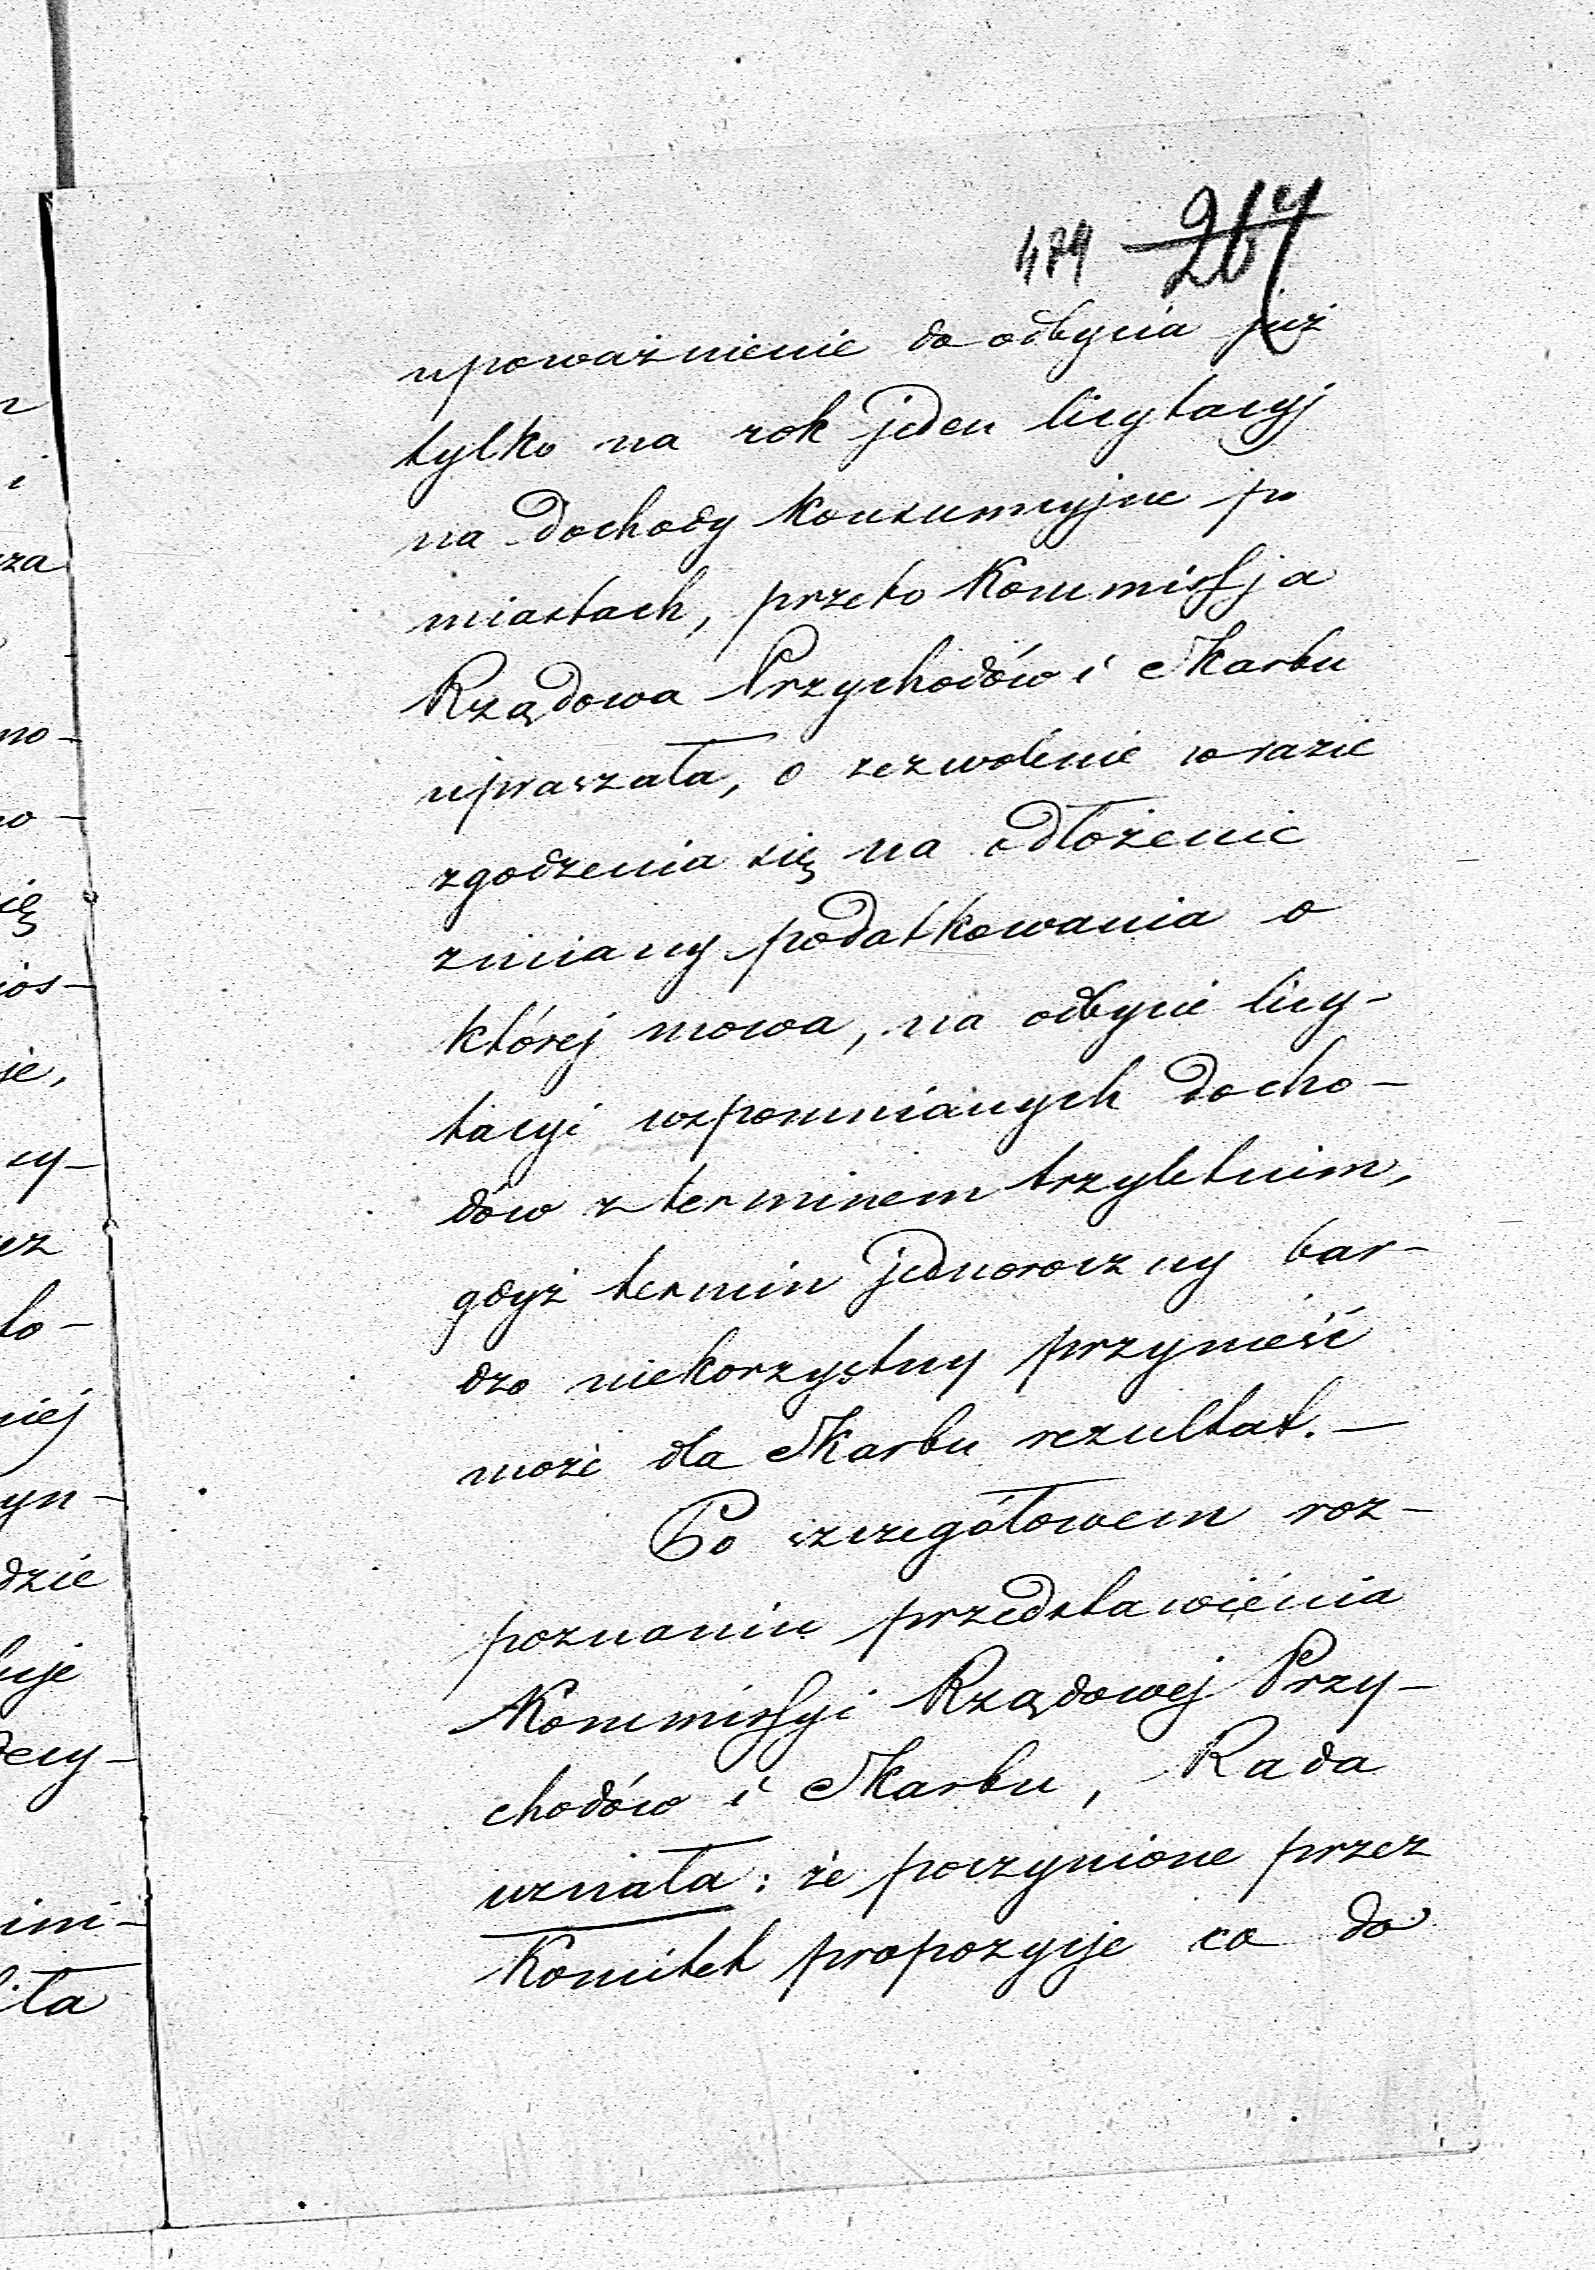 479 267
upoważnienie do odbycia już
tylko na rok jeden licytacyj
na dochody konsumcyjne po
miastach, przeto Kommissja
Rządowa Przychodów i Skarbu
upraszała, o zezwolenie w razie
zgodzenia się na odłożenie
zmiany podatkowania o
której mowa, na odbycie licy-
tacyi wspomnianych docho-
dów z terminem trzyletnim,
gdyż termin jednoroczny bar-
dzo niekorzystny przynieść
może dla Skarbu rezultat. —
Po szczegółowem roz-
poznaniu przedstawienia
Kommissyi Rządowej Przy-
chodów i Skarbu, Rada
uznała: że poczynione przez
Komitet propozycje co do